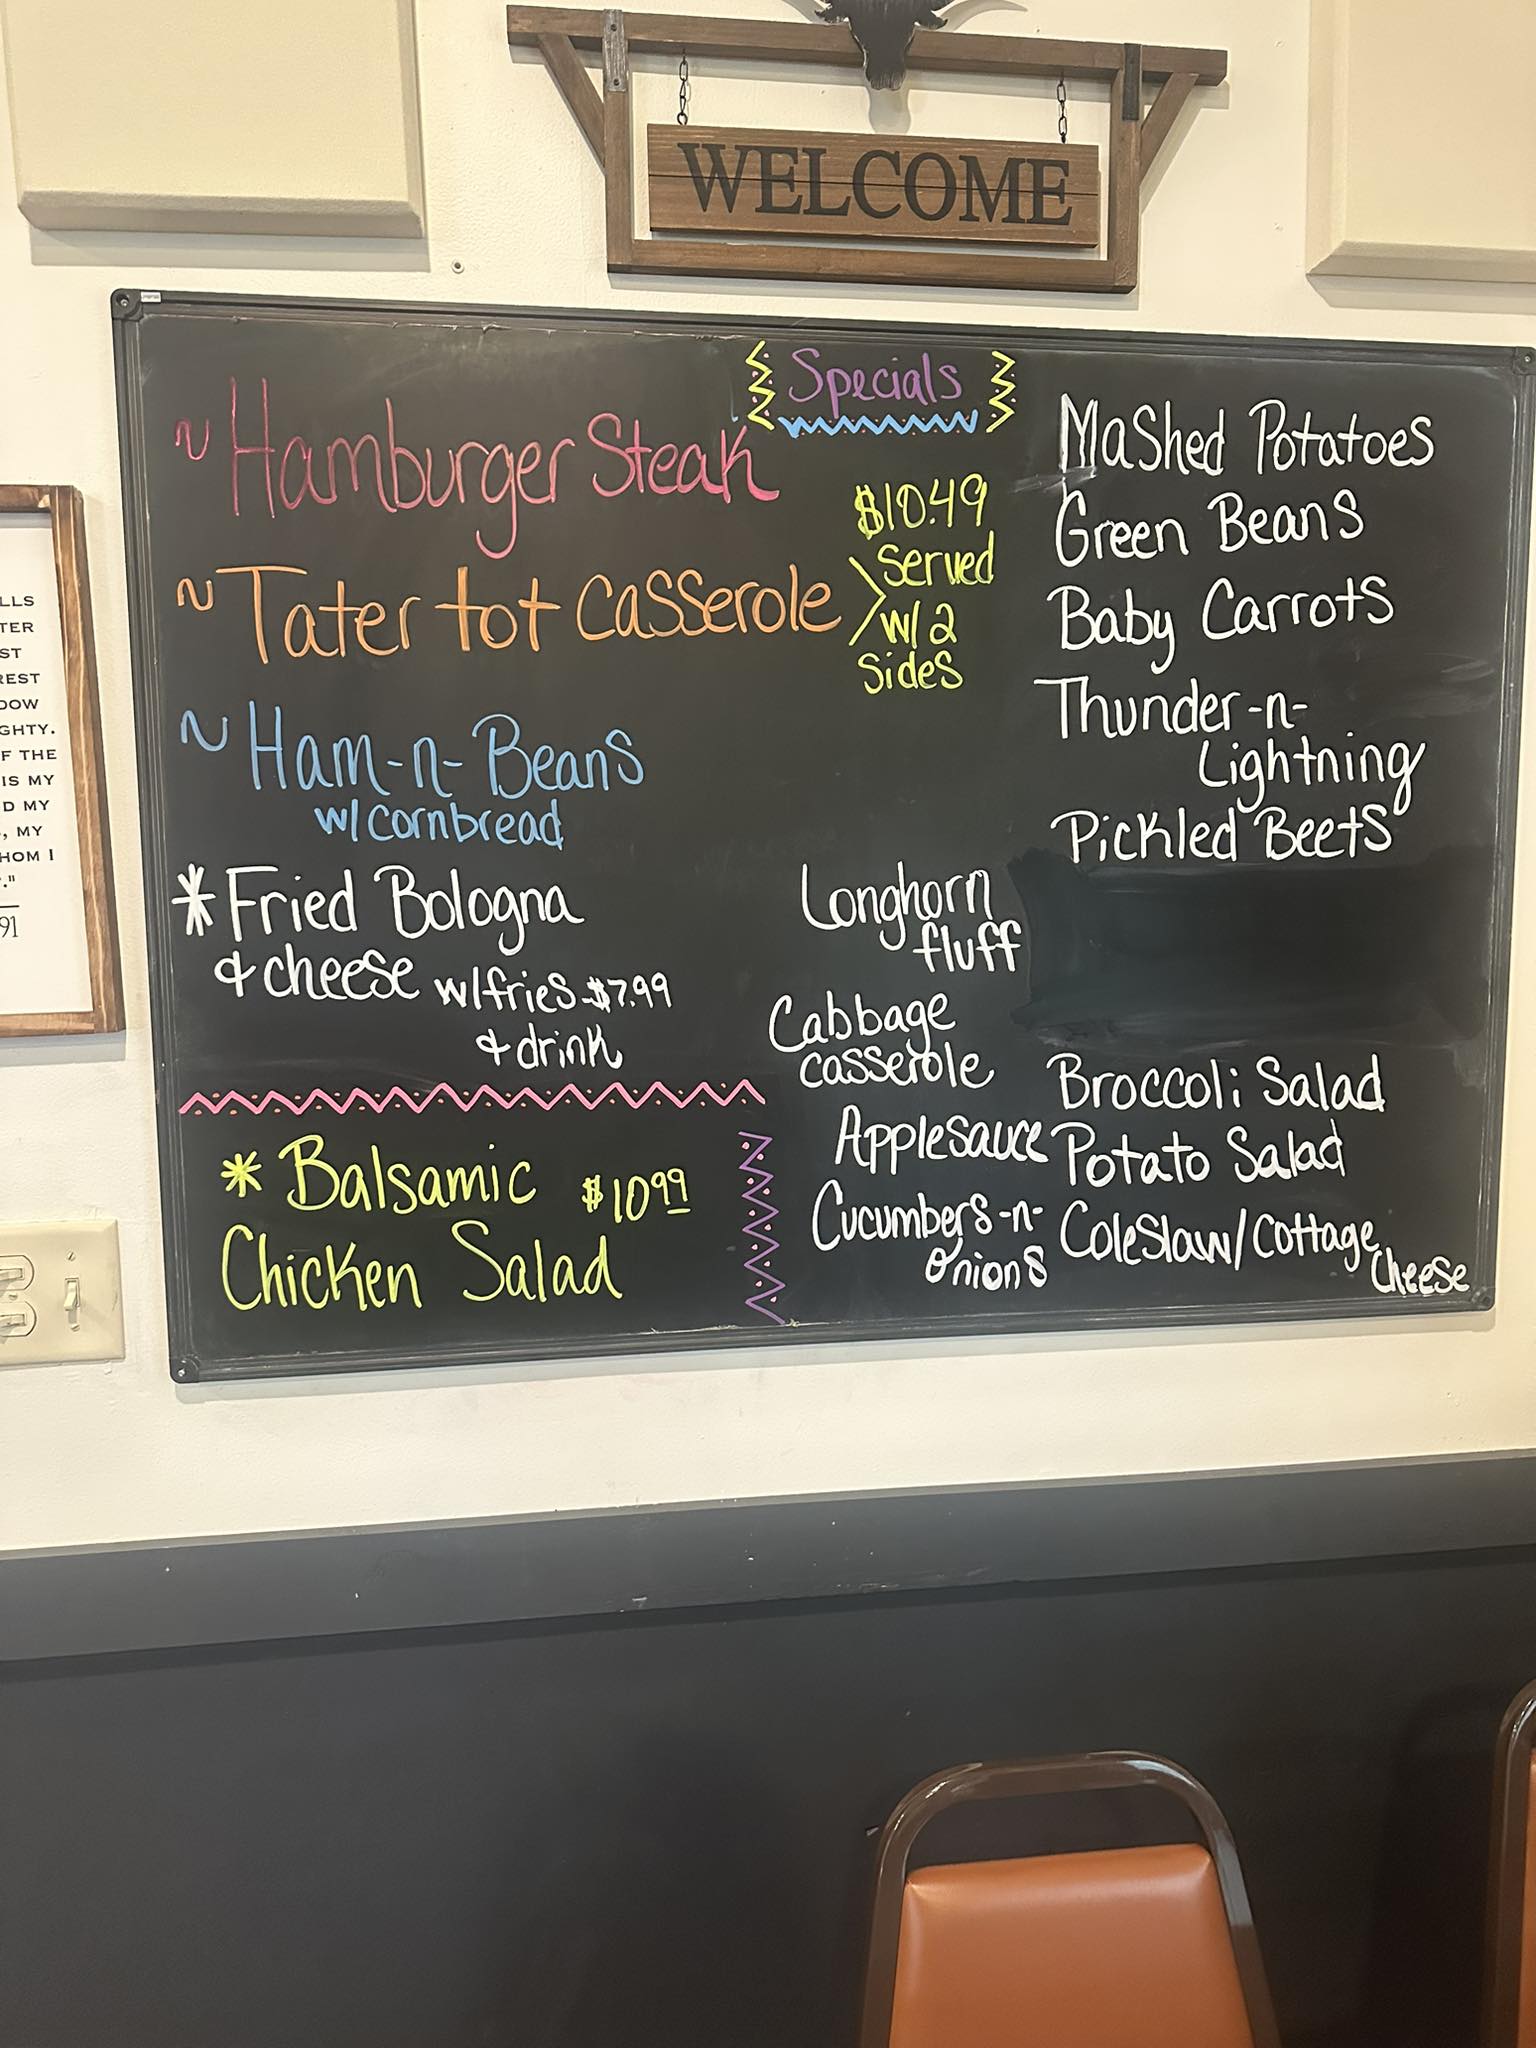 WELCOME
Specials
~ Hamburger Steak
~ Tater tot Casserole
$10.49
Served
w/ 2
Sides
~ Ham-n-Beans
w/cornbread
* Fried Bologna
& cheese w/fries $7.99
& drink
* Balsamic $10.99
Chicken Salad
Mashed Potatoes
Green Beans
Baby Carrots
Thunder-n-
Lightning
Pickled Beets
Longhorn
fluff
Cabbage
casserole
Applesauce
Cucumbers-n-
Onions
Broccoli Salad
Potato Salad
Coleslaw/Cottage
Cheese
LLS
TER
ST
REST
DOW
GHTY.
F THE
IS MY
D MY
, MY
HOM I
."
91